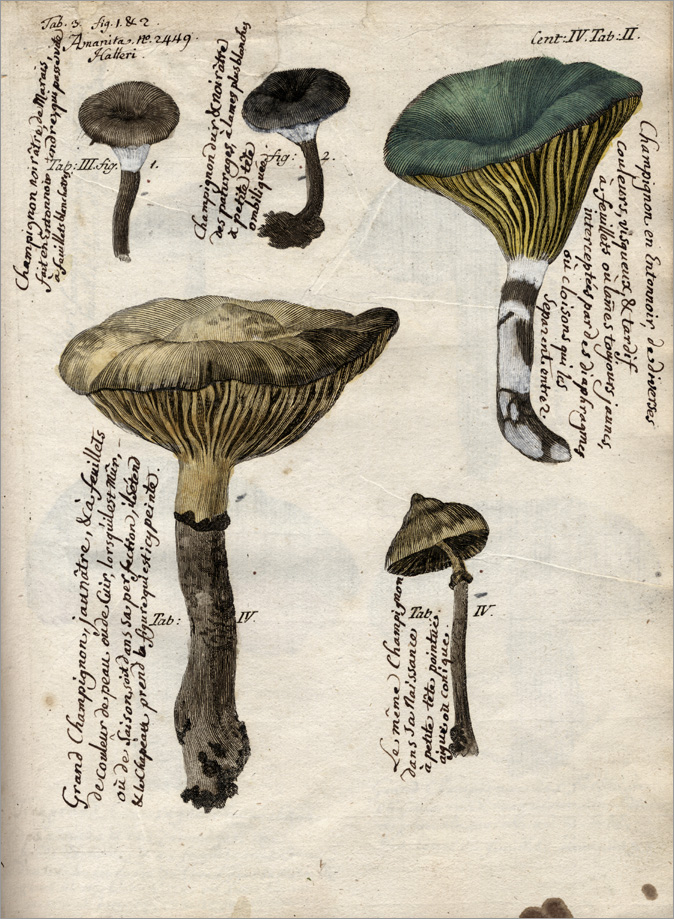 Tab. 3. fig. 1. & 2.
Amanita. no. 2449.
Halleri.
Cent: IV. Tab: II.
Champignon noirâtre, de Marais,
fait en Entonnoir
à feuillets blanchatres
Tab: III. fig. 1.
Champignon dur, & noirâtre
des paturages, à lames plus blanches
à petite tête
ombiliquée
fig: 2.
Champignon en Entonnoir, de diverses
couleurs, visqueux, & tardif
à feuillets ou lames toujours jaunes,
interceptés par des diaphragmes
ou cloisons qui les
separent entre
Grand Champignon, jaunâtre, & à feuillets
de couleur de peau, ou de Cuir, lorsqu'il est Mûr,
où de Saison, soit dans Sa perfection, il s'etend
& le Chapeau prend la figure qui est icy peinte.
Tab: IV.
Le même Champignon
dans Sa Naissance
à petite tête pointue
aigue ou conique.
Tab. IV.